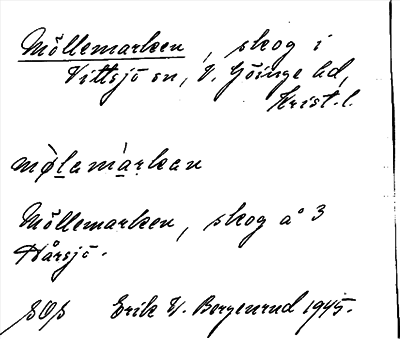 Möllemarken, skog i
Vittsjö sn, V. Göinge hd,
Krist. l.
mø̀lamàrkan
Möllemarken, skog å 3
Hårsjö.
SOS Erik V. Bergenrud 1945.